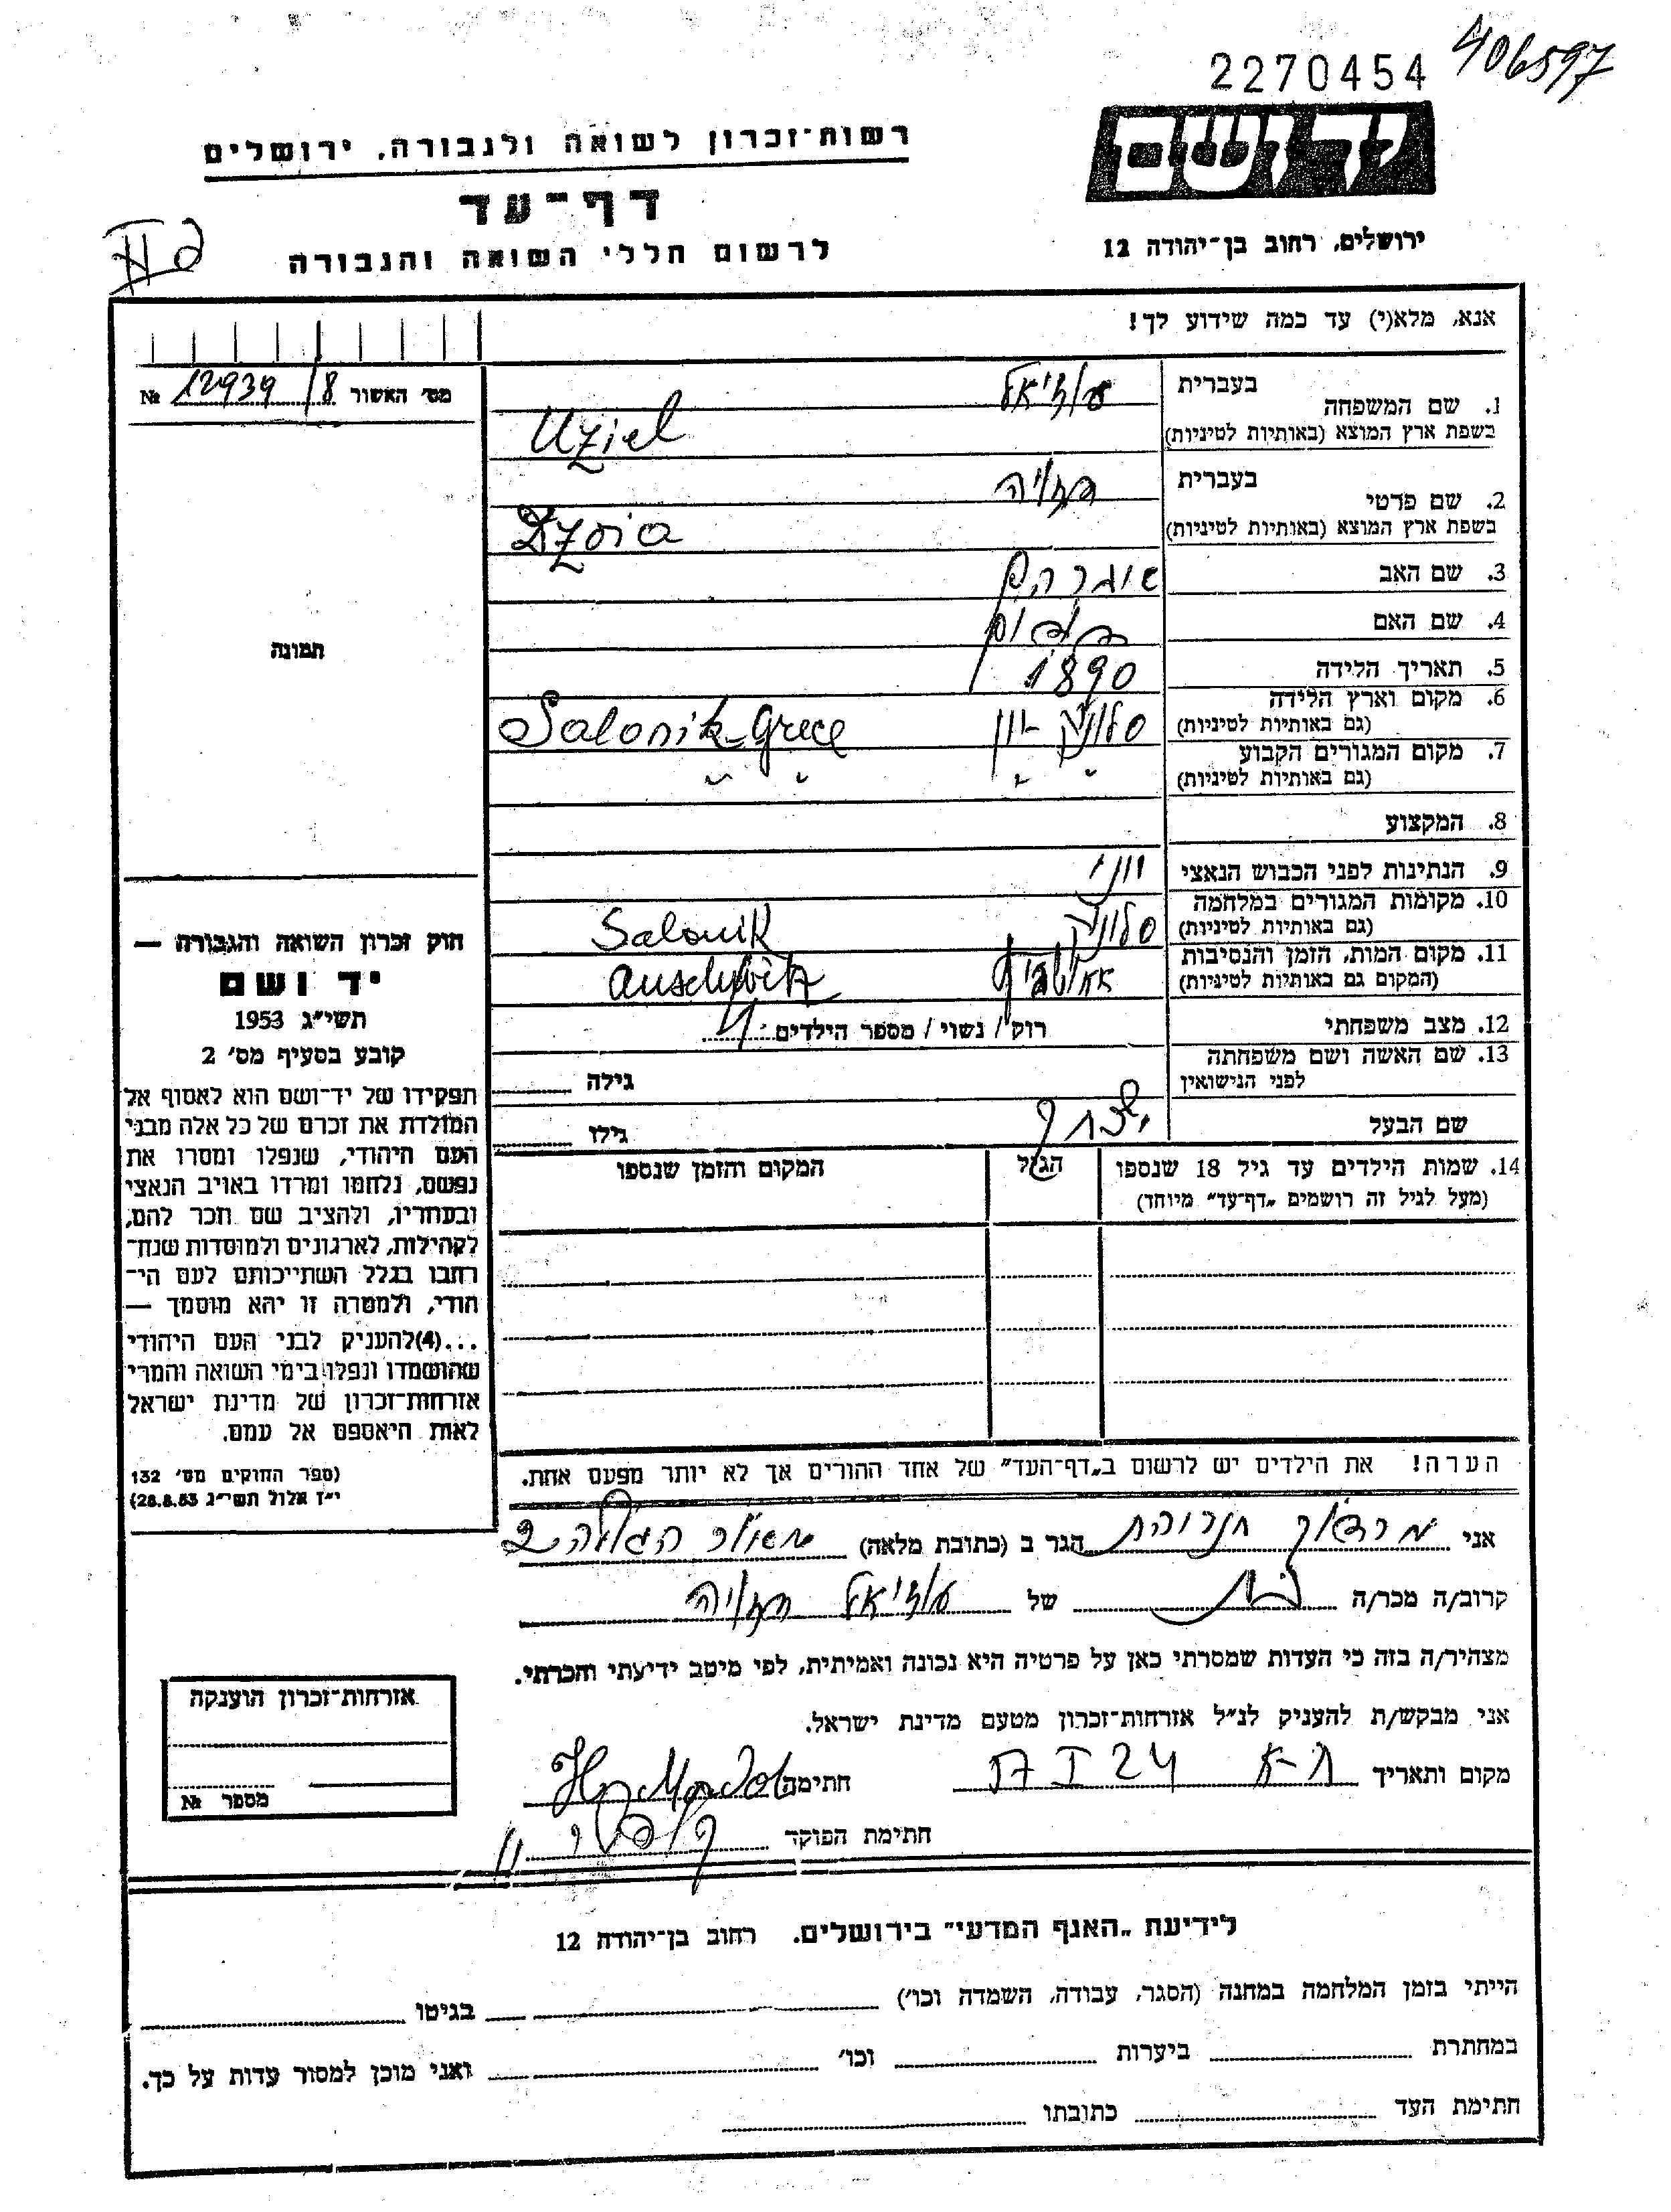 2270454 406597
יד ושם
רשות-זכרון לשואה ולגבורה, ירושלים
דף-עד
לרשום חללי השואה והגבורה
ירושלים, רחוב בן-יהודה 12
אנא, מלא(י) עד כמה שידוע לך!
מס' האשור 12939/8 №
1. שם המשפחה בעברית עוזיאל
בשפת ארץ המוצא (באותיות לטיניות) Uziel
2. שם פרטי בעברית
בשפת ארץ המוצא (באותיות לטיניות)
3. שם האב
4. שם האם
5. תאריך הלידה 1890
6. מקום וארץ הלידה סלוניק - יון Salonik-Grece
(גם באותיות לטיניות)
7. מקום המגורים הקבוע " " " "
(גם באותיות לטיניות)
8. המקצוע
9. הנתינות לפני הכבוש הנאצי יוני
10. מקומות המגורים במלחמה סלוניק Salonik
(גם באותיות לטיניות)
11. מקום המות, הזמן והנסיבות Auschwitz
(המקום גם באותיות לטיניות)
12. מצב משפחתי רוק / נשוי / מספר הילדים: 4
13. שם האשה ושם משפחתה לפני הנישואין גילה
שם הבעל יצחק גילו
14. שמות הילדים עד גיל 18 שנספו הגיל המקום והזמן שנספו
(מעל לגיל זה רושמים "דף-עד" מיוחד)
הערה! את הילדים יש לרשום ב"דף-העד" של אחד ההורים אך לא יותר מפעם אחת.
תמונה
חוק זכרון השואה והגבורה —
יד ושם
תשי"ג 1953
קובע בסעיף מס' 2
תפקידו של יד-ושם הוא לאסוף אל
המולדת את זכרם של כל אלה מבני
העם היהודי, שנפלו ומסרו את
נפשם, נלחמו ומרדו באויב הנאצי
ובעוזריו, ולהציב שם וזכר להם,
לקהילות, לארגונים ולמוסדות שנח-
רבו בגלל השתייכותם לעם הי-
הודי, ולמטרה זו יהא מוסמך —
...(4)להעניק לבני העם היהודי
שהושמדו ונפלו בימי השואה והמרי
אזרחות-זכרון של מדינת ישראל
לאות היאספם אל עמם.
(ספר החוקים מס' 132
י"ז אלול תשי"ג 28.8.53)
אני הגר ב (כתובת מלאה)
קרוב/ה מכר/ה בת של עוזיאל
מצהיר/ה בזה כי העדות שמסרתי כאן על פרטיה היא נכונה ואמיתית, לפי מיטב ידיעתי והכרתי.
אני מבקש/ת להעניק לנ"ל אזרחות-זכרון מטעם מדינת ישראל.
מקום ותאריך ת-א 24 I חתימה
חתימת הפוקד
אזרחות-זכרון הוענקה
מספר №
לידיעת "האגף המדעי" בירושלים. רחוב בן-יהודה 12
הייתי בזמן המלחמה במחנה (הסגר, עבודה, השמדה וכו') בגיטו
במחתרת ביערות וכו' ואני מוכן למסור עדות על כך.
חתימת העד כתובתו